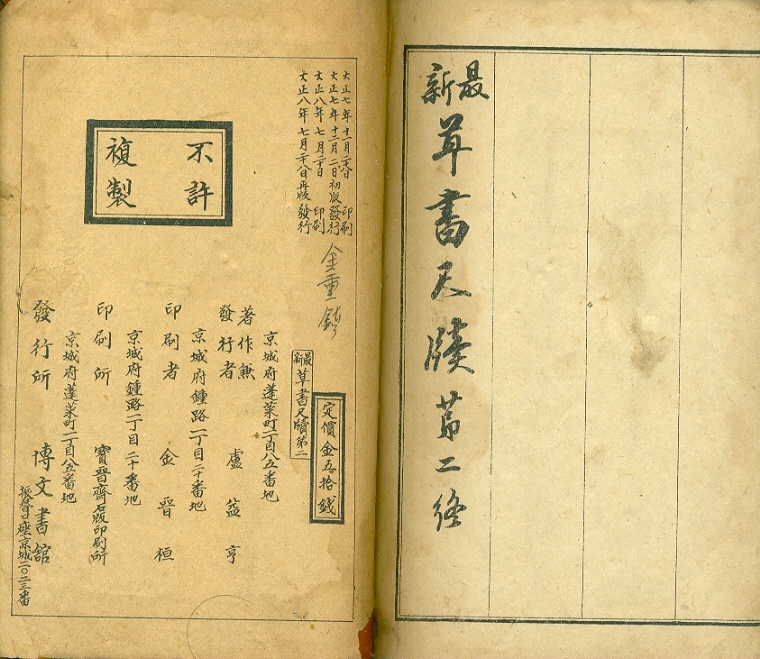 最新草書尺牘第二終
大正七年十一月二十八日印刷
大正七年十二月二日初版發行
大正八年七月二十日印刷
大正八年七月二十八日再版發行
不許
複製
定價金五拾錢
最新草書尺牘第二
京城府蓬萊町一丁目八五番地
著作兼
發行者 盧益亨
京城府鍾路二丁目二十番地
印刷者 金晉桓
京城府鍾路二丁目二十番地
印刷所 寶晉齋石版印刷所
京城府蓬萊町一丁目八五番地
發行所 博文書館
振替口座京城二〇二三番